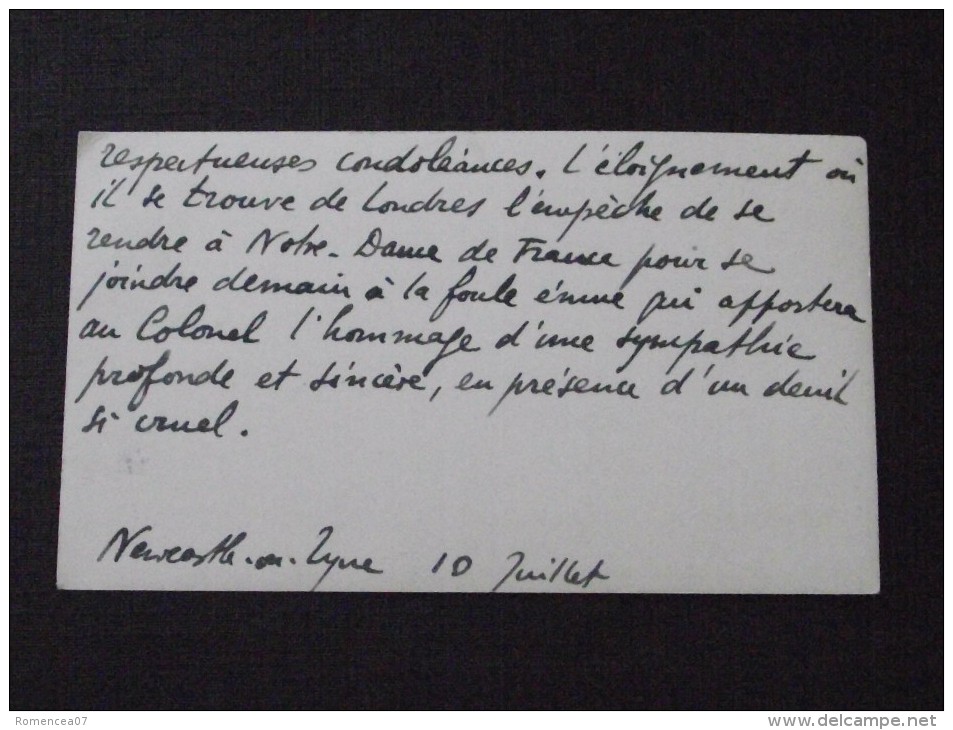 respectueuses condoléances. L'éloignement où
il se trouve de Londres l'empêche de se
rendre à Notre-Dame de France pour se
joindre demain à la foule émue qui apportera
au Colonel l'hommage d'une sympathie
profonde et sincère, en présence d'un deuil
si cruel.
Newcastle-on-Tyne 10 Juillet
Romencea07
www.delcampe.net